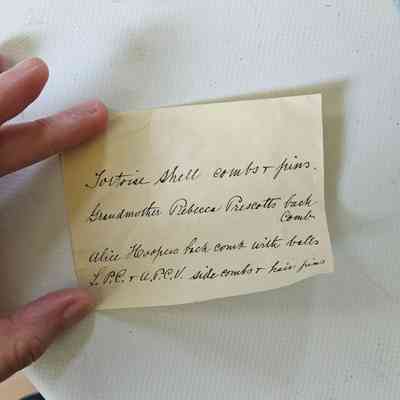 Tortoise shell combs + pins.
Grandmother Rebecca Prescotts back
Comb
Alice Hoopers back comb with balls
L.P.C. + U.P.C.V. side combs + hair pins